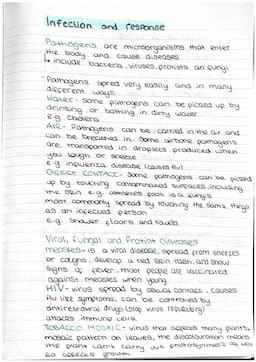 Infection and response
Pathogens are microorganisms that enter
the body and cause diseases
↳ include bacteria, viruses, protists an fungi
Pathogens spred very easily and in many
different ways.
Water - Some pathogens can be picked up by
drinking or bathing in dirty water
e.g. Cholera
AIR - Pathogens can be carried in the air and
can be breathed in. Some airborne pathogens
are transported in droplets produced when
you cough or sneeze
e.g influenza disease (causes flu)
DIRECT CONTACT - Some pathogens can be picked
up by touching contaminated surfaces, including
the skin e.g. athletes foot is a fungis
most commonly spread by touching the same things
as an infected person
e.g. shower floors and towels
Viral, Fungal and Protist Diseases
measles - is a viral disease, spread from sneezes
or coughs, develop a red skin rash and show
signs of fever, most people are vaccinated
against measles when young
HIV - virus spread by sexual contact, causes
flu like symptoms, can be controlled by
antiretroviral drugs (stop virus replicating)
attacks immune cells.
TOBACCO MOSAIC - virus that affects many plants,
mosaic pattern on leaves, the discolouration means
the plant can't carry out photosynthesis
so affects growth